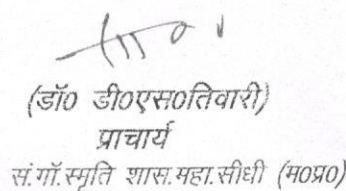 (डॉ0 डी0एस0तिवारी)
प्राचार्य
सं.गॉ.स्मृति शास.महा.सीधी (म0प्र0)